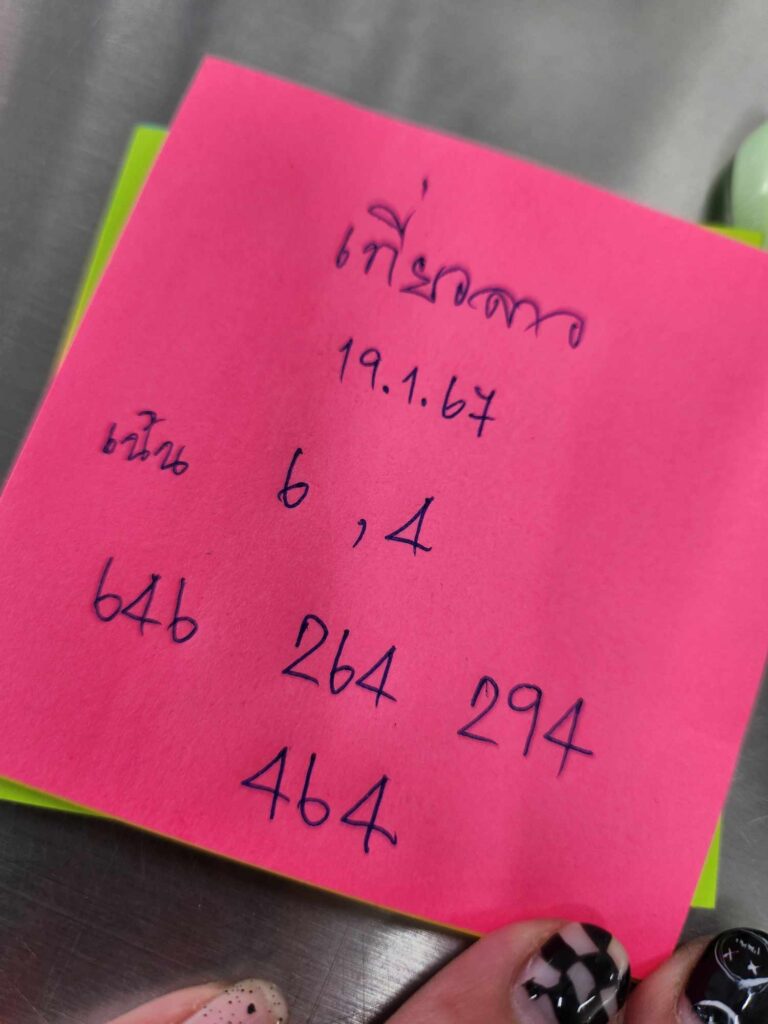 เที่ยวลาว
19.1.67
เน้น 6 , 4
646 264 294
464